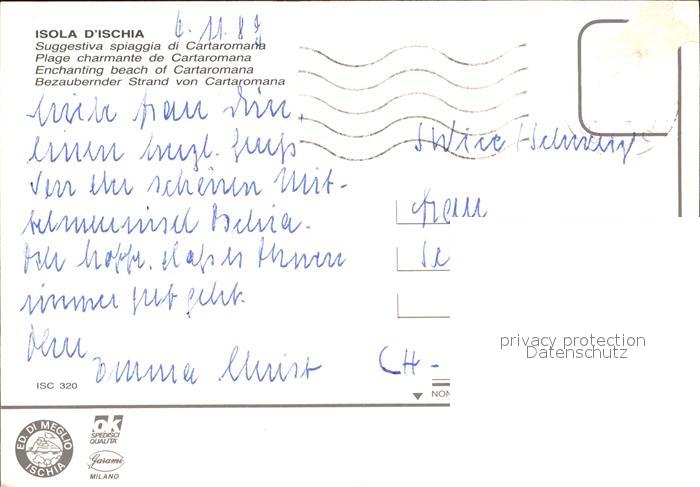 ISOLA D'ISCHIA
Suggestiva spiaggia di Cartaromana
Plage charmante de Cartaromana
Enchanting beach of Cartaromana
Bezaubernder Strand von Cartaromana
Frau
einen herzl. Gruß
von der schönen Mit-
telmeerinsel Ischia.
Ich hoffe, daß es Ihnen
immer gut geht.
Ihre
Emma Christ
Schweiz
Frau
CH -
ISC 320
NON
ED. DI MEGLIO
ISCHIA
ok
SPEDISCI
QUALITÀ
Garami
MILANO
privacy protection
Datenschutz